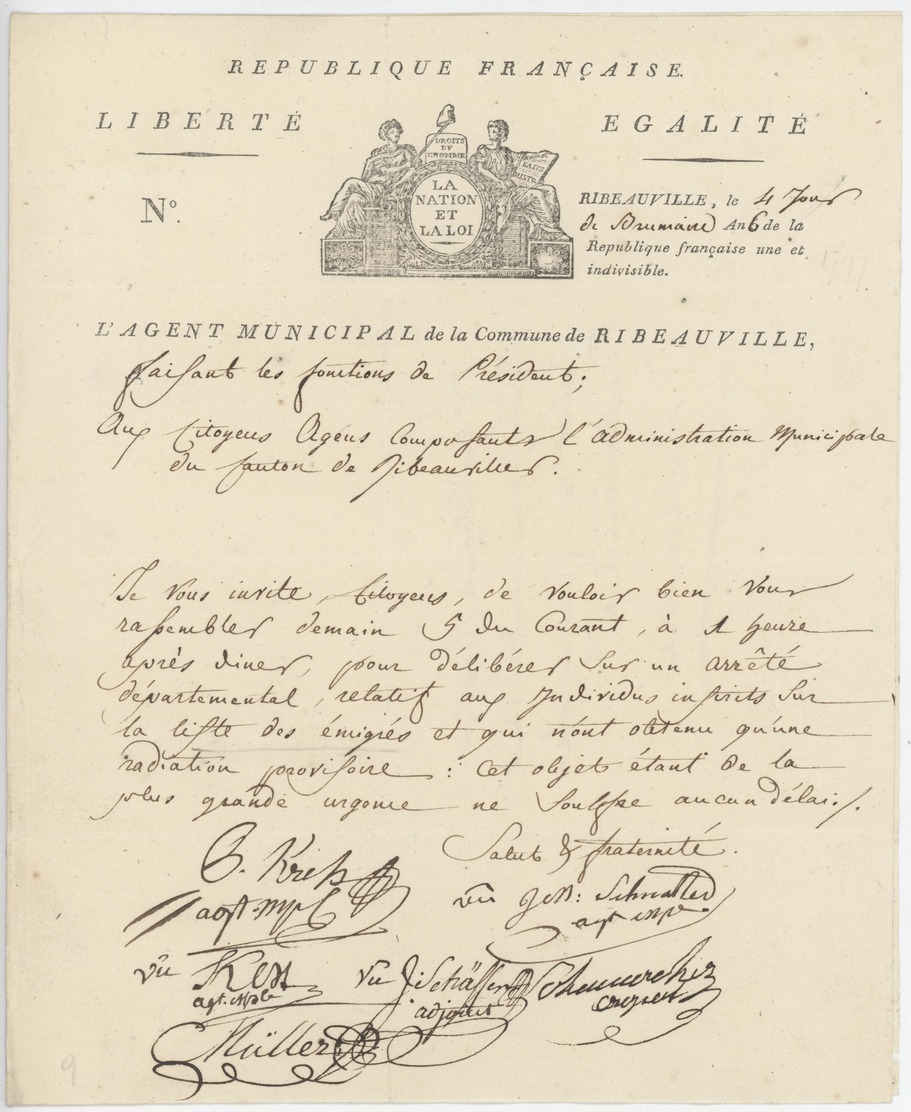 REPUBLIQUE FRANÇAISE.
LIBERTÉ
EGALITÉ
DROITS
DE
L'HOMME
LA
NATION
ET
LA LOI
N°.
RIBEAUVILLE, le 4 Jour
de Brumaire An 6 de la
Republique française une et
indivisible.
L'AGENT MUNICIPAL de la Commune de RIBEAUVILLE,
faisant les fonctions de Président;
Aux Citoyens Agens Composants l'administration Municipale
du Canton de Ribeauviller.
Je vous invite, Citoyens, de vouloir bien vous
rassembler demain 5 du Courant, à 1 heure
après diner, pour délibérer sur un arrêté
départemental, relatif aux Individus inscrits sur
la liste des émigrés et qui n'ont obtenu qu'une
radiation provisoire : cet objet étant de la
plus grande urgence ne souffre aucun délai./.
Salut & fraternité.
agt. mpl
vu Schmitted
agt mpe.
vu
agt. mple
vu J. Schäffer
adjoint
Müller
9